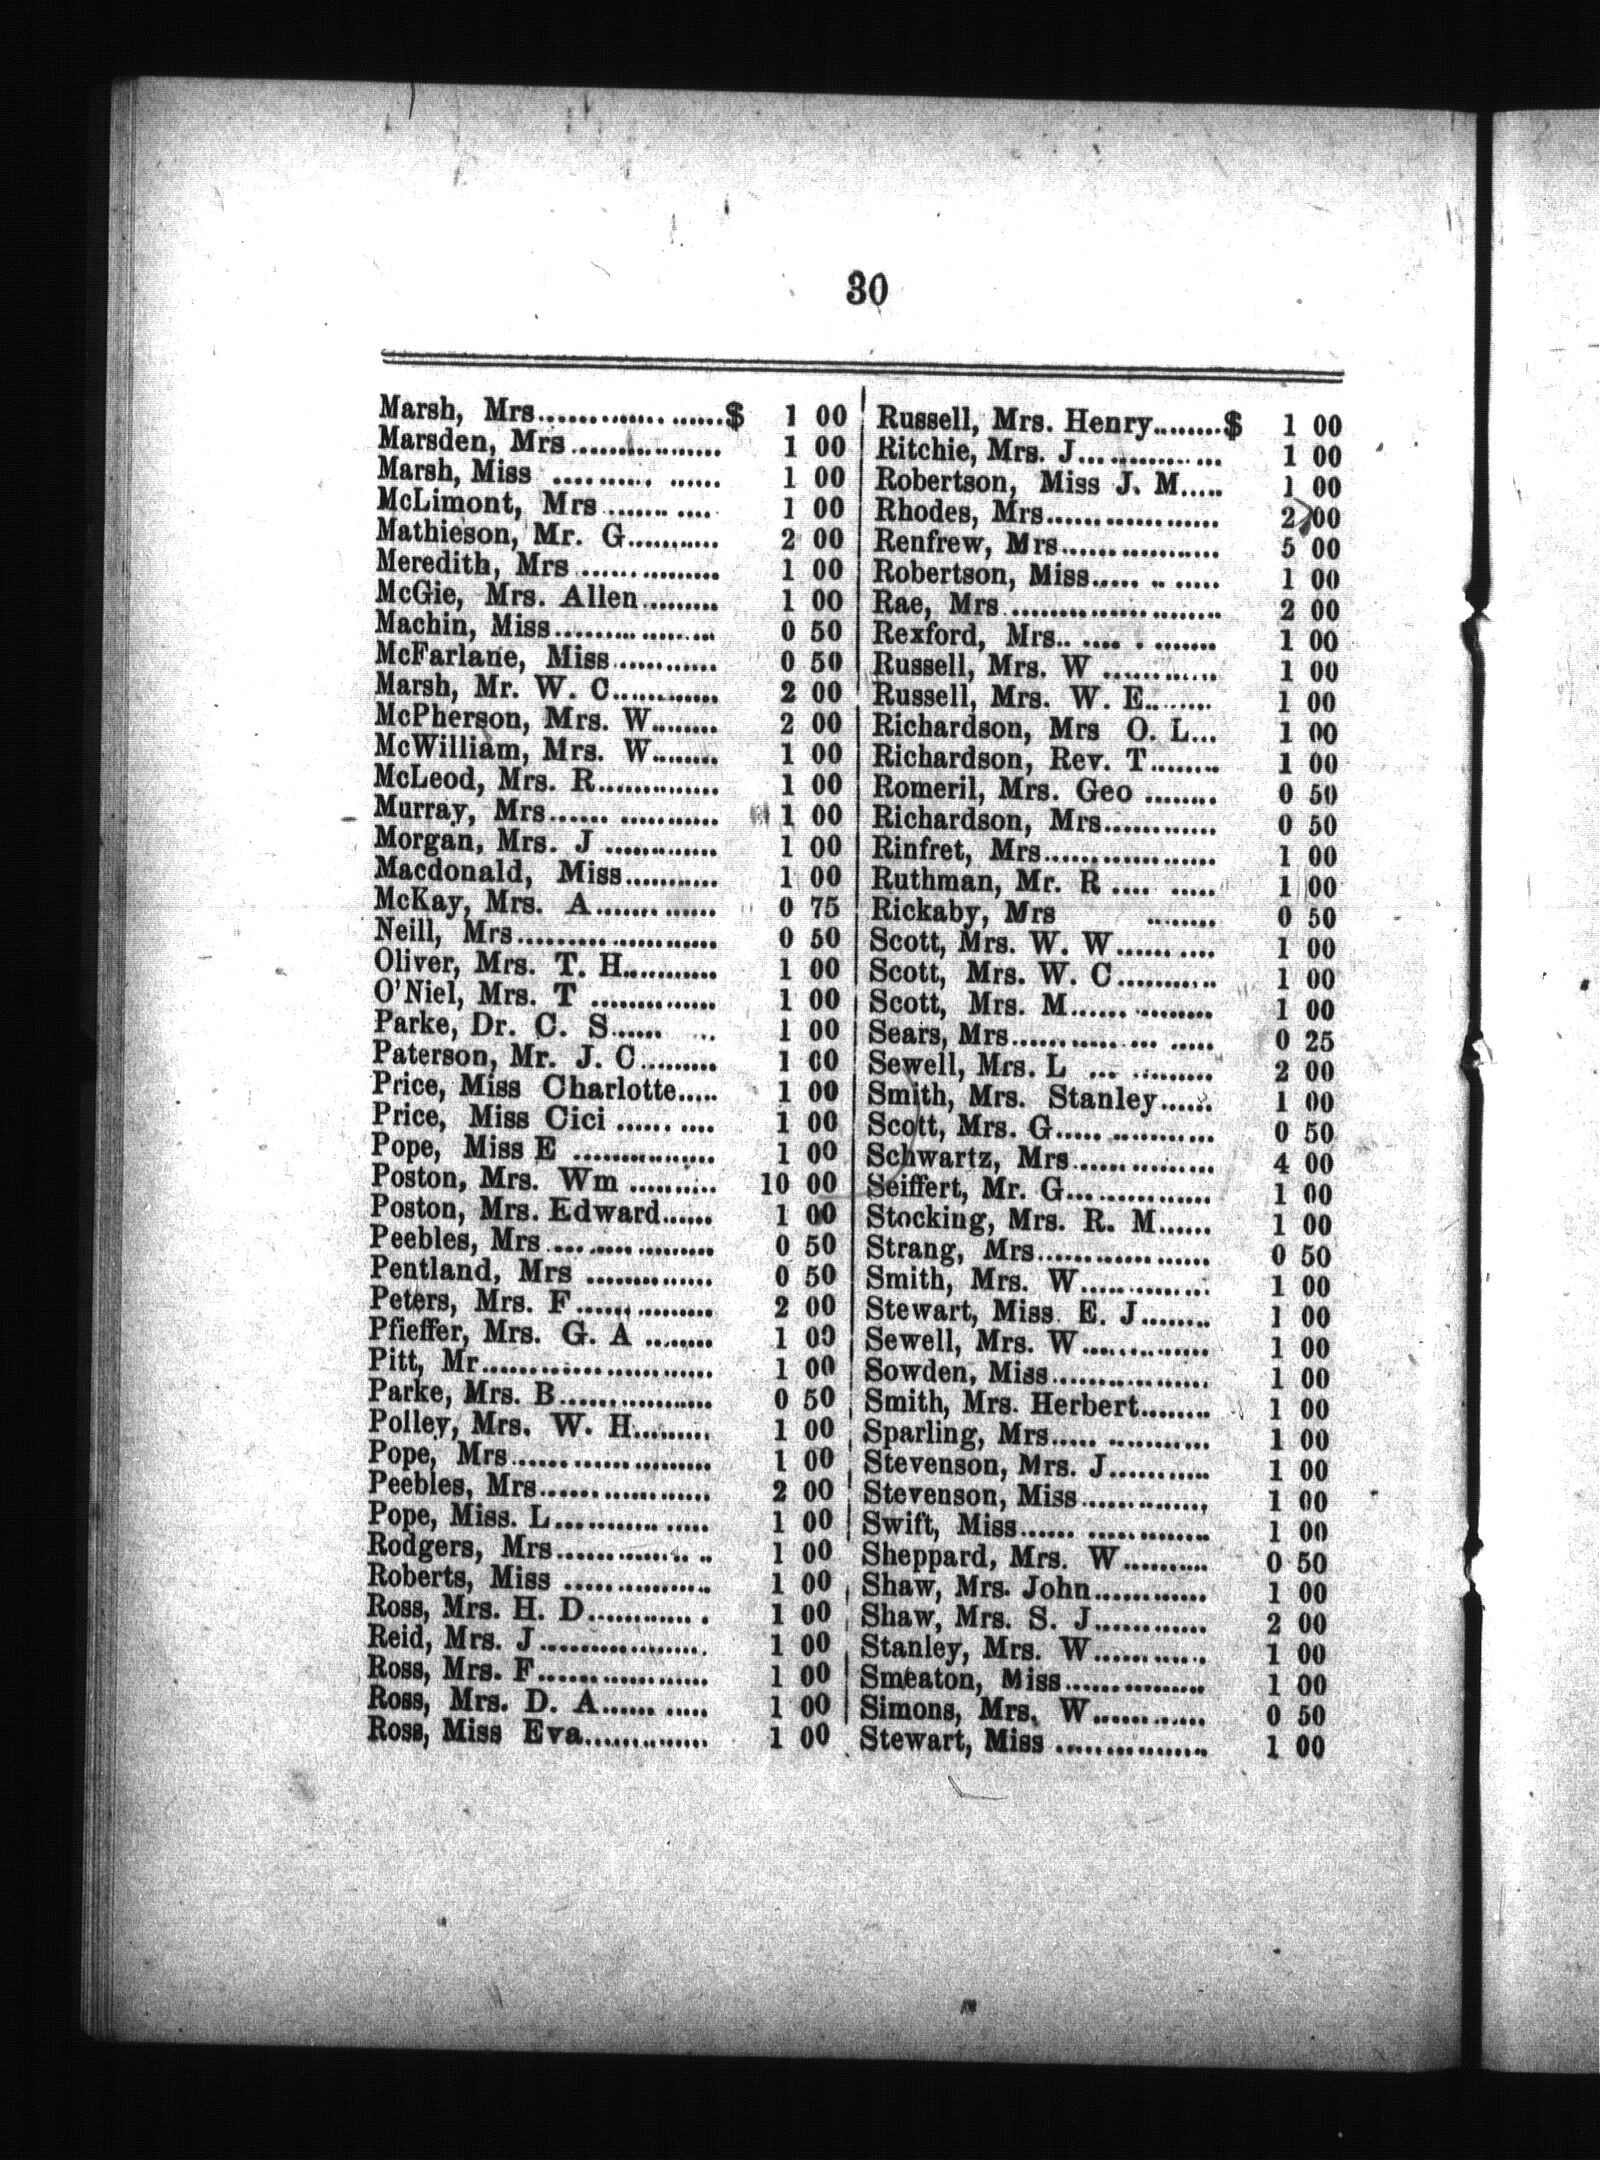 30
Marsh, Mrs.....................$ 1 00
Marsden, Mrs................. 1 00
Marsh, Miss .......... ...... 1 00
McLimont, Mrs ....... .... 1 00
Mathieson, Mr. G........... 2 00
Meredith, Mrs ................ 1 00
McGie, Mrs. Allen......... 1 00
Machin, Miss.................. 0 50
McFarlane, Miss............ 0 50
Marsh, Mr. W. C............ 2 00
McPherson, Mrs. W........ 2 00
McWilliam, Mrs. W........ 1 00
McLeod, Mrs. R.............. 1 00
Murray, Mrs...... ........... 1 00
Morgan, Mrs. J ............. 1 00
Macdonald, Miss........... 1 00
McKay, Mrs. A....... ...... 0 75
Neill, Mrs...................... 0 50
Oliver, Mrs. T. H........... 1 00
O'Niel, Mrs. T .............. 1 00
Parke, Dr. C. S...... ... 1 00
Paterson, Mr. J. C......... 1 00
Price, Miss Charlotte..... 1 00
Price, Miss Cici ...... .... 1 00
Pope, Miss E ................ 1 00
Poston, Mrs. Wm .......... 10 00
Poston, Mrs. Edward...... 1 00
Peebles, Mrs .... ..... ......... 0 50
Pentland, Mrs .............. 0 50
Peters, Mrs. F...... ......... 2 00
Pfieffer, Mrs. G. A ........ 1 00
Pitt, Mr....................... 1 00
Parke, Mrs. B................ 0 50
Polley, Mrs. W. H......... 1 00
Pope, Mrs.................... 1 00
Peebles, Mrs................. 2 00
Pope, Miss. L............ ..... 1 00
Rodgers, Mrs............. .. .. 1 00
Roberts, Miss ............... 1 00
Ross, Mrs. H. D............ . 1 00
Reid, Mrs. J ................. 1 00
Ross, Mrs. F................. 1 00
Ross, Mrs. D. A...... ..... 1 00
Ross, Miss Eva.............. 1 00
Russell, Mrs. Henry........$ 1 00
Ritchie, Mrs. J... ......... ... 1 00
Robertson, Miss J. M..... 1 00
Rhodes, Mrs.................. 2 00
Renfrew, Mrs................. 5 00
Robertson, Miss..... .. ..... 1 00
Rae, Mrs ..................... 2 00
Rexford, Mrs.. .... . ....... 1 00
Russell, Mrs. W ............ 1 00
Russell, Mrs. W. E........ 1 00
Richardson, Mrs O. L... 1 00
Richardson, Rev. T........ 1 00
Romeril, Mrs. Geo ........ 0 50
Richardson, Mrs............ 0 50
Rinfret, Mrs.................. 1 00
Ruthman, Mr. R .... ..... 1 00
Rickaby, Mrs ........ 0 50
Scott, Mrs. W. W...... .... 1 00
Scott, Mrs. W. C.......... 1 00
Scott, Mrs. M...... ......... 1 00
Sears, Mrs............... ..... 0 25
Sewell, Mrs. L ... ......... 2 00
Smith, Mrs. Stanley...... 1 00
Scott, Mrs. G..... ........... 0 50
Schwartz, Mrs............... 4 00
Seiffert, Mr. G............... 1 00
Stocking, Mrs. R. M...... 1 00
Strang, Mrs.................. 0 50
Smith, Mrs. W.............. 1 00
Stewart, Miss E. J........ 1 00
Sewell, Mrs. W.............. 1 00
Sowden, Miss................ 1 00
Smith, Mrs. Herbert........ 1 00
Sparling, Mrs..... ............ 1 00
Stevenson, Mrs. J........... 1 00
Stevenson, Miss.............. 1 00
Swift, Miss...... ............. 1 00
Sheppard, Mrs. W.......... 0 50
Shaw, Mrs. John............ 1 00
Shaw, Mrs. S. J............ 2 00
Stanley, Mrs. W............ 1 00
Smeaton, Miss............... 1 00
Simons, Mrs. W............ 0 50
Stewart, Miss ................ 1 00